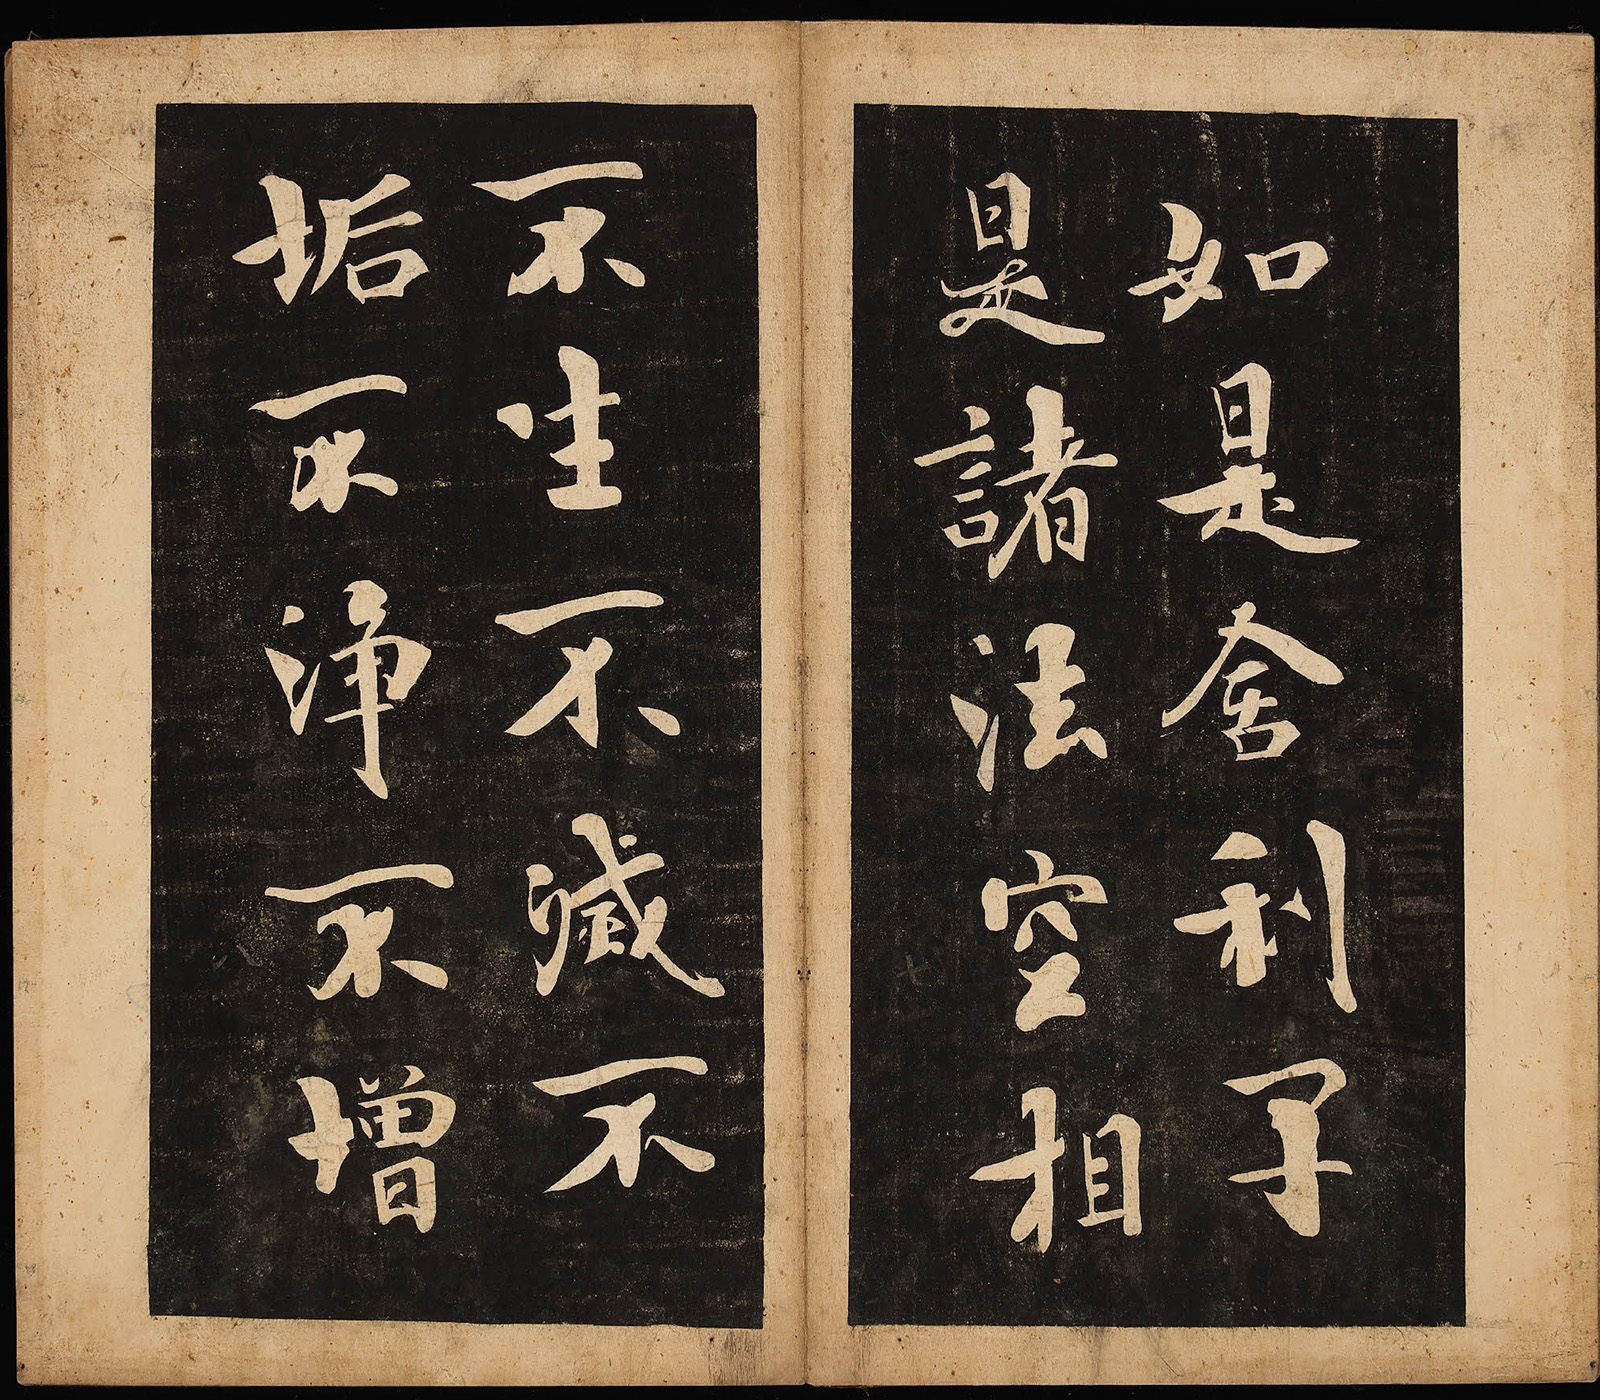 如是舍利子
是諸法空相
不生不滅不
垢不淨不增